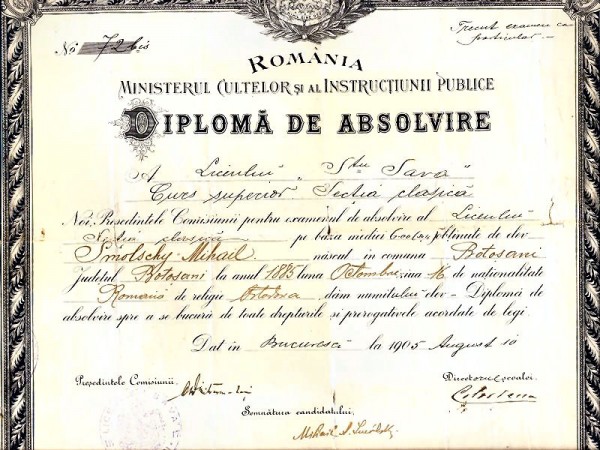 No 72 bis
Trecut examen ca
particular
ROMÂNIA
MINISTERUL CULTELOR ȘI AL INSTRUCȚIUNII PUBLICE
DIPLOMĂ DE ABSOLVIRE
A Liceului „Sfu Sava”
Curs superior Secția clasică
Noi, Președintele Comisiunii pentru examenul de absolvire al Liceului
Secția clasică pe baza mediei obținute de elev
Smolschy Mihail născut în comuna Botosani
Județul Botosani la anul 1885 luna Octombrie ziua 16 de naționalitate
Romană de religie Ortodoxa dăm numitului elev – Diplomă de
absolvire spre a se bucură de toate drepturile și prerogativele acordate de legi
Dat în Bucuresci la 1905 August 10
Președintele Comisiunii,
Directorul școalei,
Semnătura candidatului,